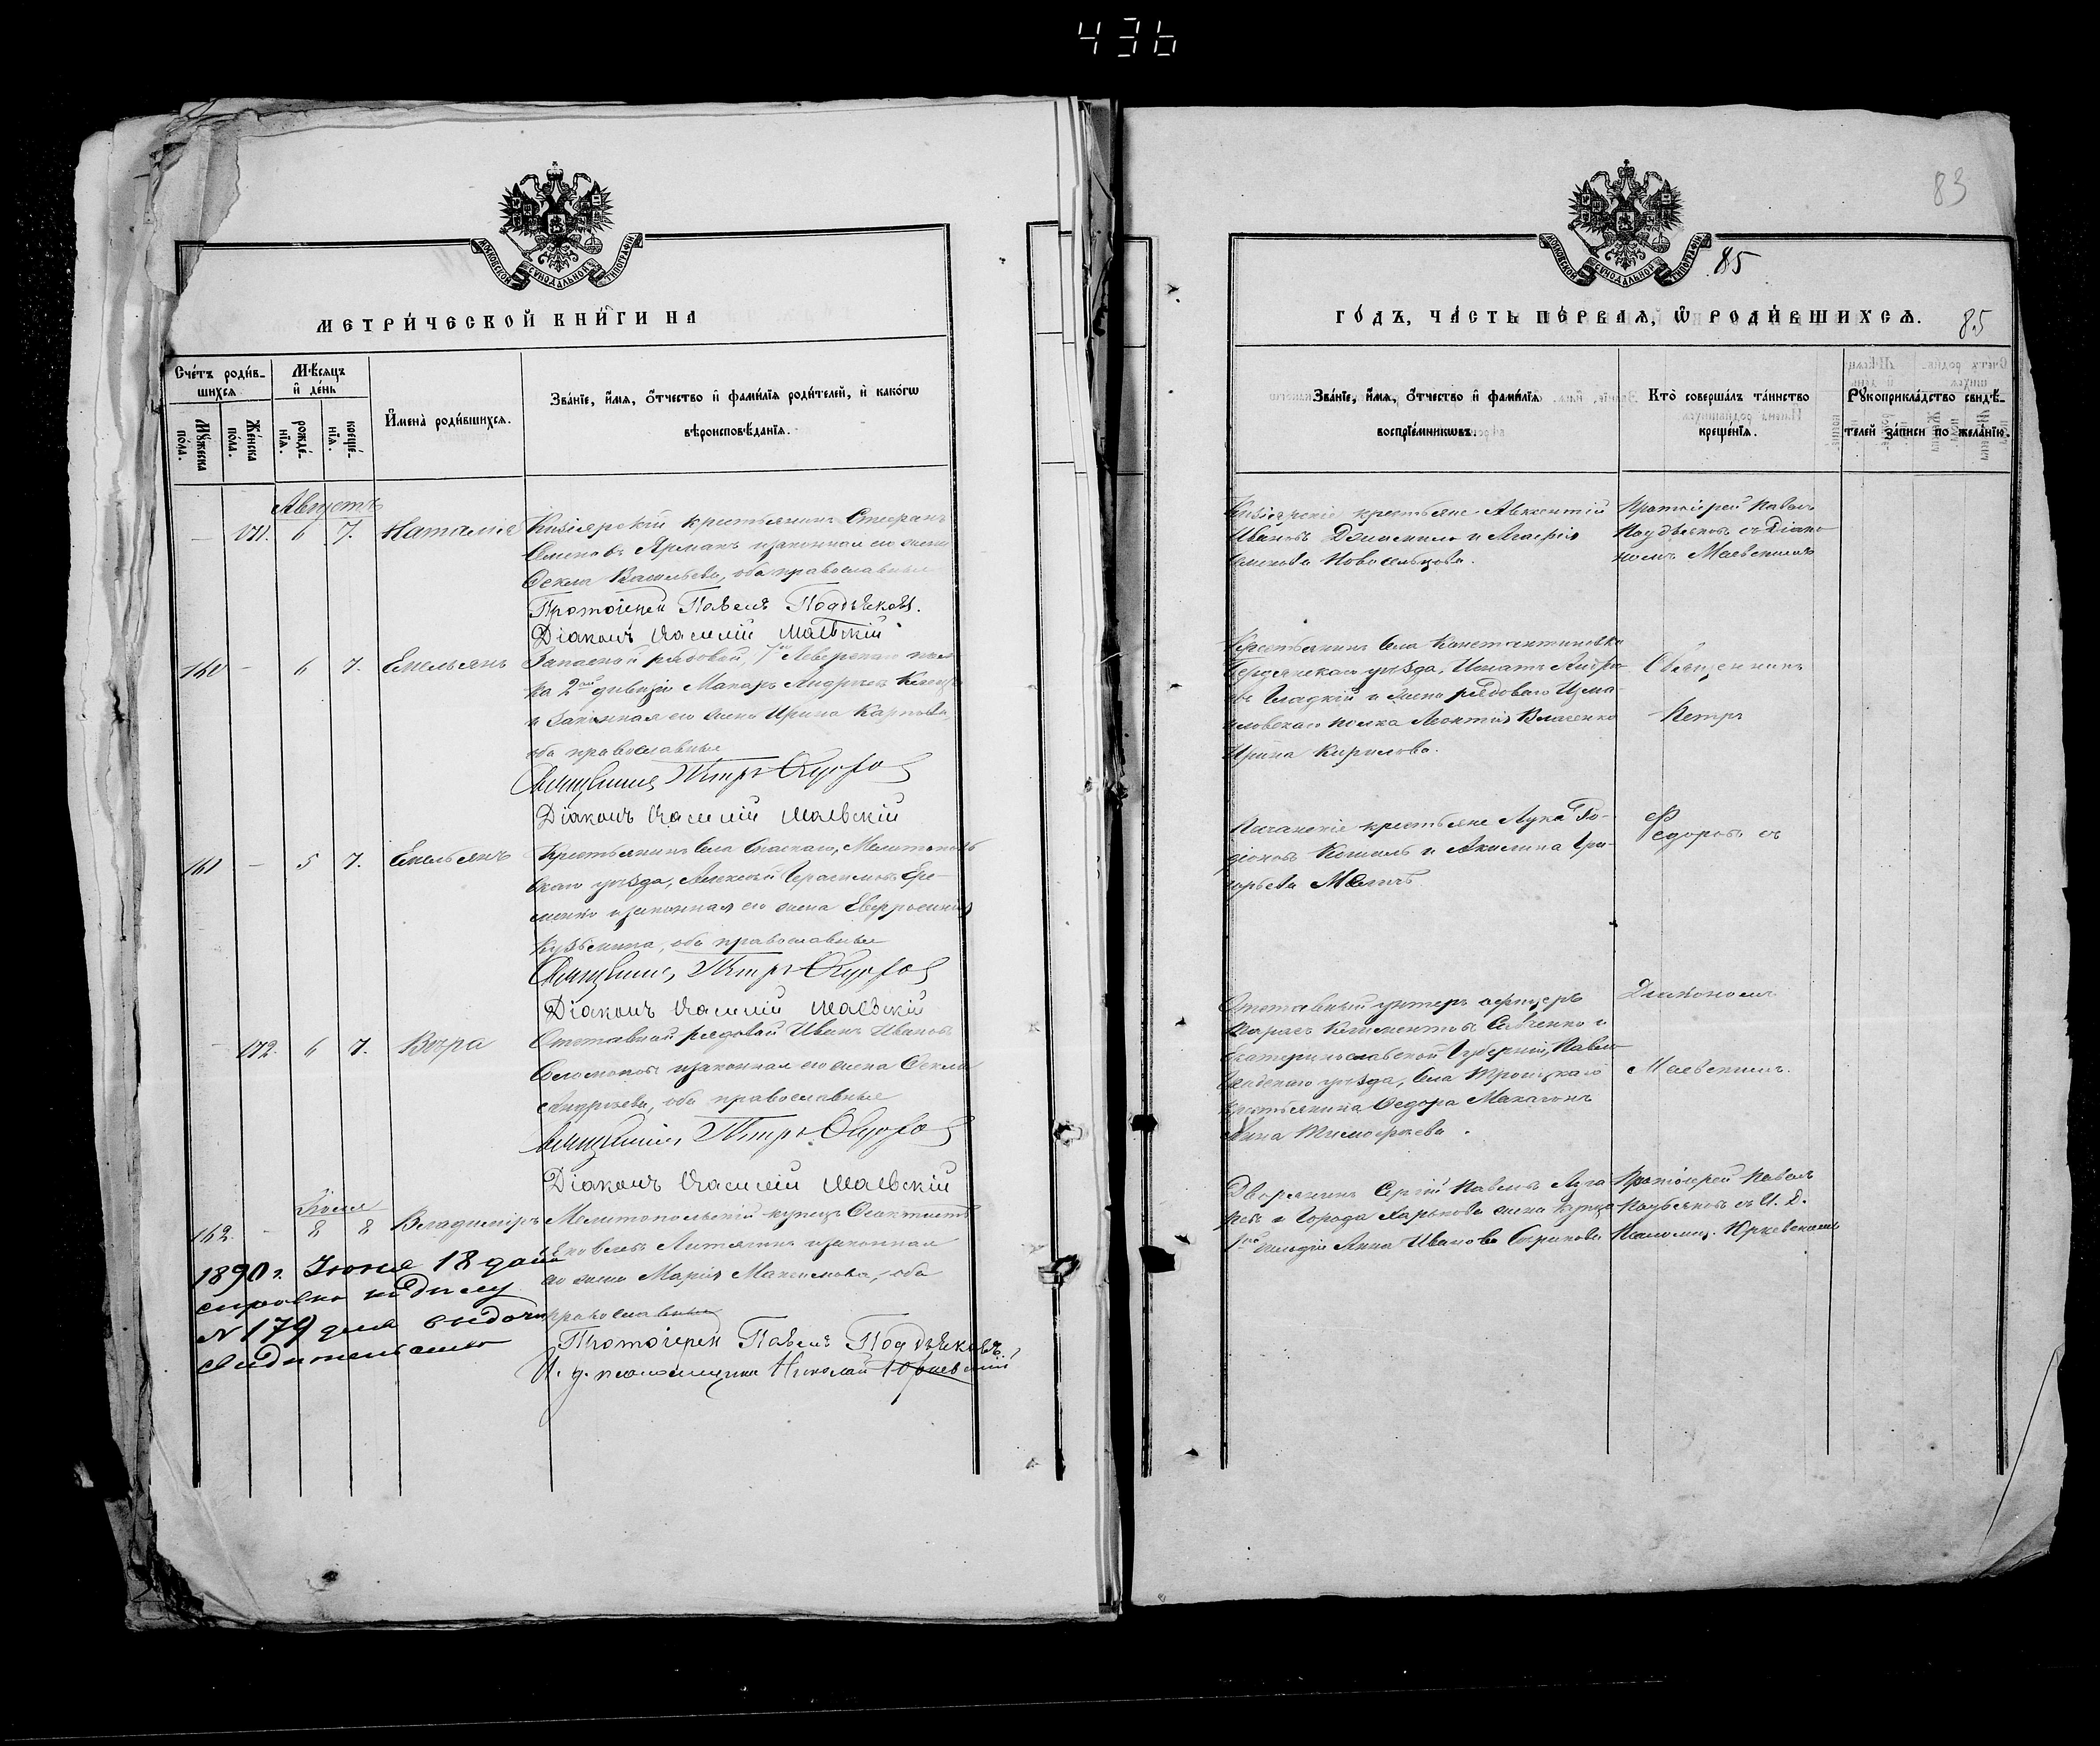 436
МОСКОВСКОЙ СѴНОДАЛЬНОЙ ТИПОГРАФІИ
МЕТРИ́ЧЕСКОЙ КНИ́ГИ НА
Сче́тъ роди́в-
шихся
Мѣ́сяцъ
и҆ де́нь
Мꙋ́жеска по́ла.
Же́нска по́ла.
рожде́-
нїя.
креще́-
нїя.
И҆мена̀ роди́вшихся.
Зва́нїе, и҆́мя, ѻ҆́тчество и҆ фами́лїя роди́телей, и҆ како́гѡ
вѣроисповѣ́данїя.
Августъ
— 171. 6 7. Наталія
Кизіярскій крестьянинъ Стефанъ
Семеновъ Ярманъ и законная его жена
Ѳекла Васильева, оба православные
Протоіерей Павелъ Поддьяковъ.
Діаконъ Василій Маевскій
160 — 6 7. Емельянъ
Запасной рядовой, 1го
ка 2ой дивизіи Макаръ Андреевъ
и законная его жена Ирина Карпова,
оба православные
Священникъ Петръ Ѳедоровъ
Діаконъ Василій Маевскій
161 — 5 7. Емельянъ
Крестьянинъ села Спаскаго, Мелитополь
скаго уѣзда, Алексѣй Герасимовъ Ере-
менко и законная его жена Евфросинія
Кузьмина, оба православные
Священникъ Петръ Ѳедоровъ
Діаконъ Василій Маевскій
— 172. 6 7. Вѣра
Отставной рядовой Иванъ Ивановъ
Соломоновъ и законная его жена Ѳекла
Андреева, оба православные
Священникъ Петръ Ѳедоровъ
Діаконъ Василій Маевскій
162. — 8 8 Владиміръ
Мелитопольскій купецъ Ѳеоктистъ
Яковлевъ Литягинъ и законная
его жена Марія Максимова, оба
православные
Протоіерей Павелъ Поддьяковъ.
И. д. псаломщика Николай Юркевскій
1890 г. Іюня 18 дана
справка по дѣлу
№ 179 для выдачи
свидетельства
83
МОСКОВСКОЙ СѴНОДАЛЬНОЙ ТИПОГРАФІИ
85
ГО́ДЪ, ЧА́СТЬ ПЕ́РВАЯ, Ѡ҆ РОДИ́ВШИХСЯ.
85
Зва́нїе, и҆́мя, ѻ҆́тчество и҆ фами́лїя
воспрїе́мникѡвъ.
Кто̀ соверша́лъ та́инство
креще́нїя.
Рꙋкоприкла́дство свидѣ́-
телей за́писи по жела́нїю.
Кизіярскіе крестьяне Авксентій
Ивановъ и Агафія
Семенова Новосельцова.
Протоіерей Павелъ
Поддьяковъ съ Діако
номъ Маевскимъ
Крестьянинъ села Константиновки
Бердянскаго уѣзда, Игнатъ Андре
евъ Гладкій и жена рядоваго Изма
иловскаго полка Леонтія Власенко
Ирина Кирилова.
Священникъ
Петръ
крестьяне Лука Ро-
діоновъ и Акилина Гри-
горьева
Федоровъ съ
Отставный унтеръ офицеръ
Климентовъ Савченко и
Екатеринославской Губерніи, Павло
градскаго уѣзда, села Троицкаго
крестьянина Ѳедора
Анна Тимофеева.
Діакономъ
Маевскимъ.
Дворянинъ Сергій Павловъ
и Города Харькова жена купца
1ой гильдіи Анна Иванова
Протоіерей Павелъ
Поддьяковъ съ И. Д.
Псаломщ. Юркевскимъ